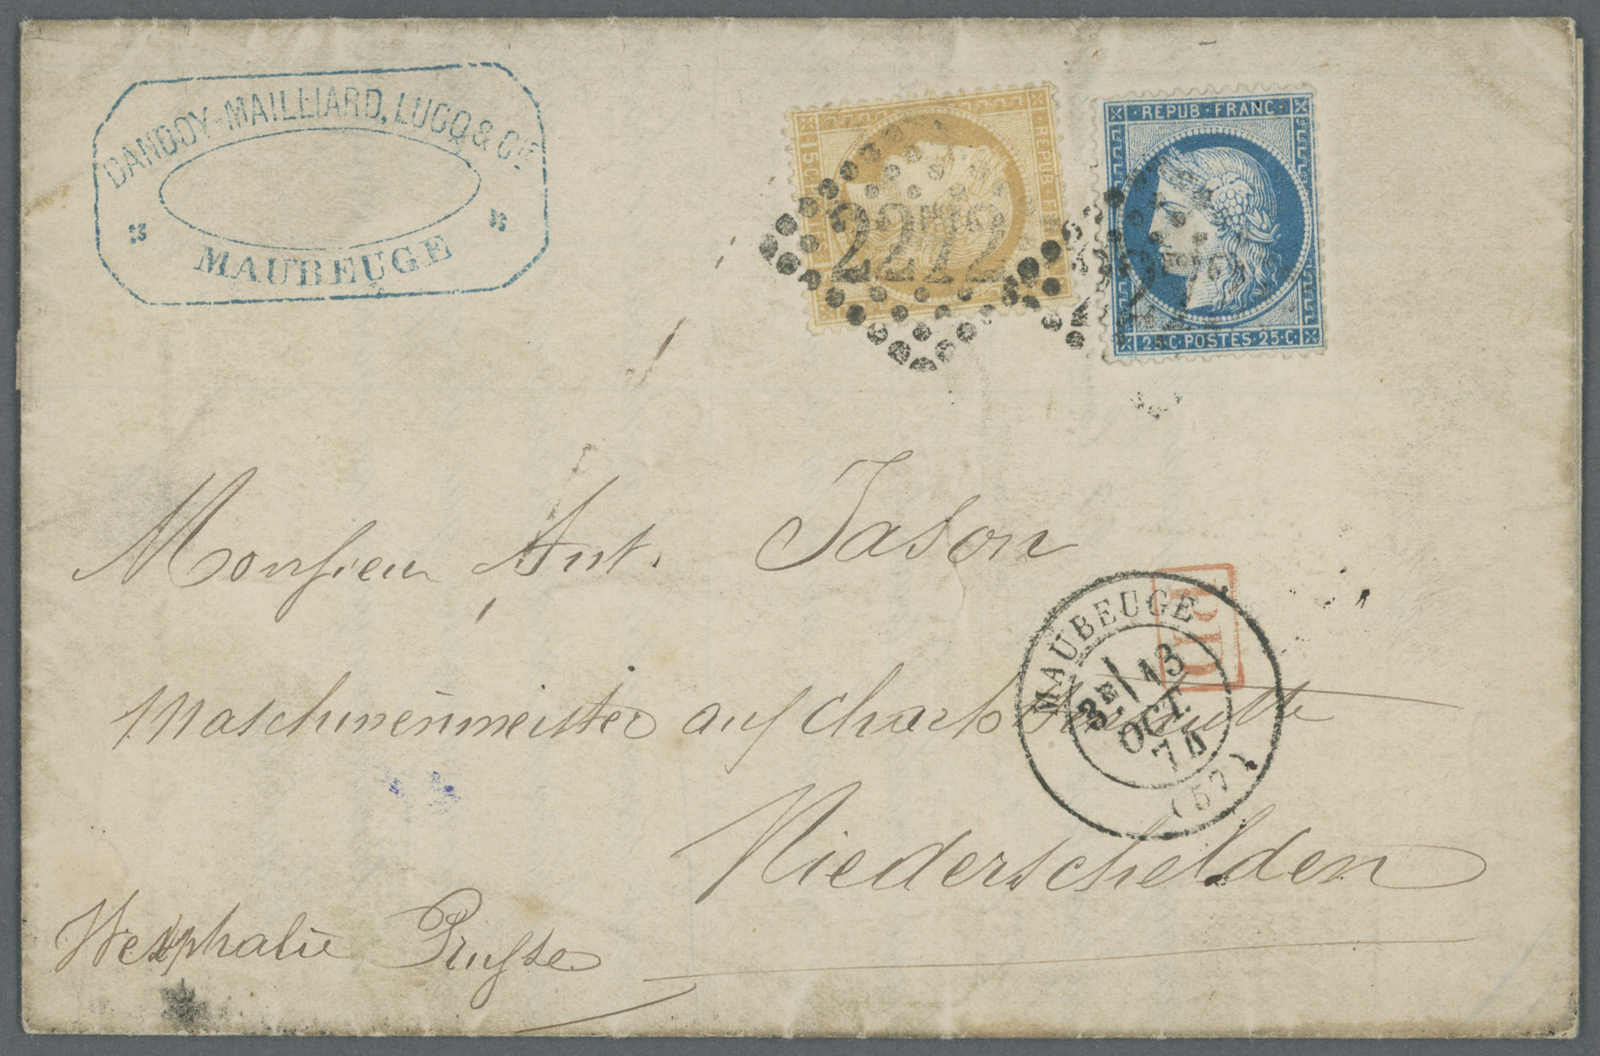 DANDOY-MAILLIARD, LUCQ & Cie
MAUBEUGE
15 C REPUB. F
2272
REPUB·FRANC·
25·C·POSTES·25·C·
Monsieur Ant. Jason
PD
MAUBEUGE
3E/ 13
OCT.
74
(57)
Maschinenmeister auf Charlottenhütte
Niederschelden
Westphalie Prusse